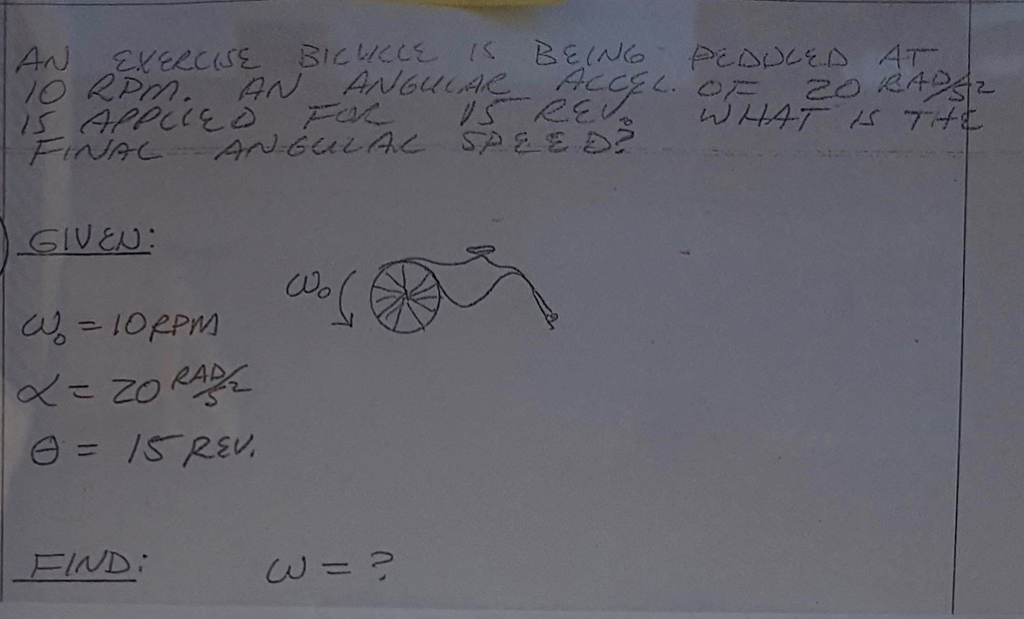 AN EXERCISE BICYCLE IS BEING PEDDLED AT
10 RPM. AN ANGULAR ACCEL. OF 20 RAD/S2
IS APPLIED FOR 15 REV. WHAT IS THE
FINAL ANGULAR SPEED?
GIVEN:
ω₀
ω₀ = 10 RPM
α = 20 RAD/S2
θ = 15 REV.
FIND: ω = ?